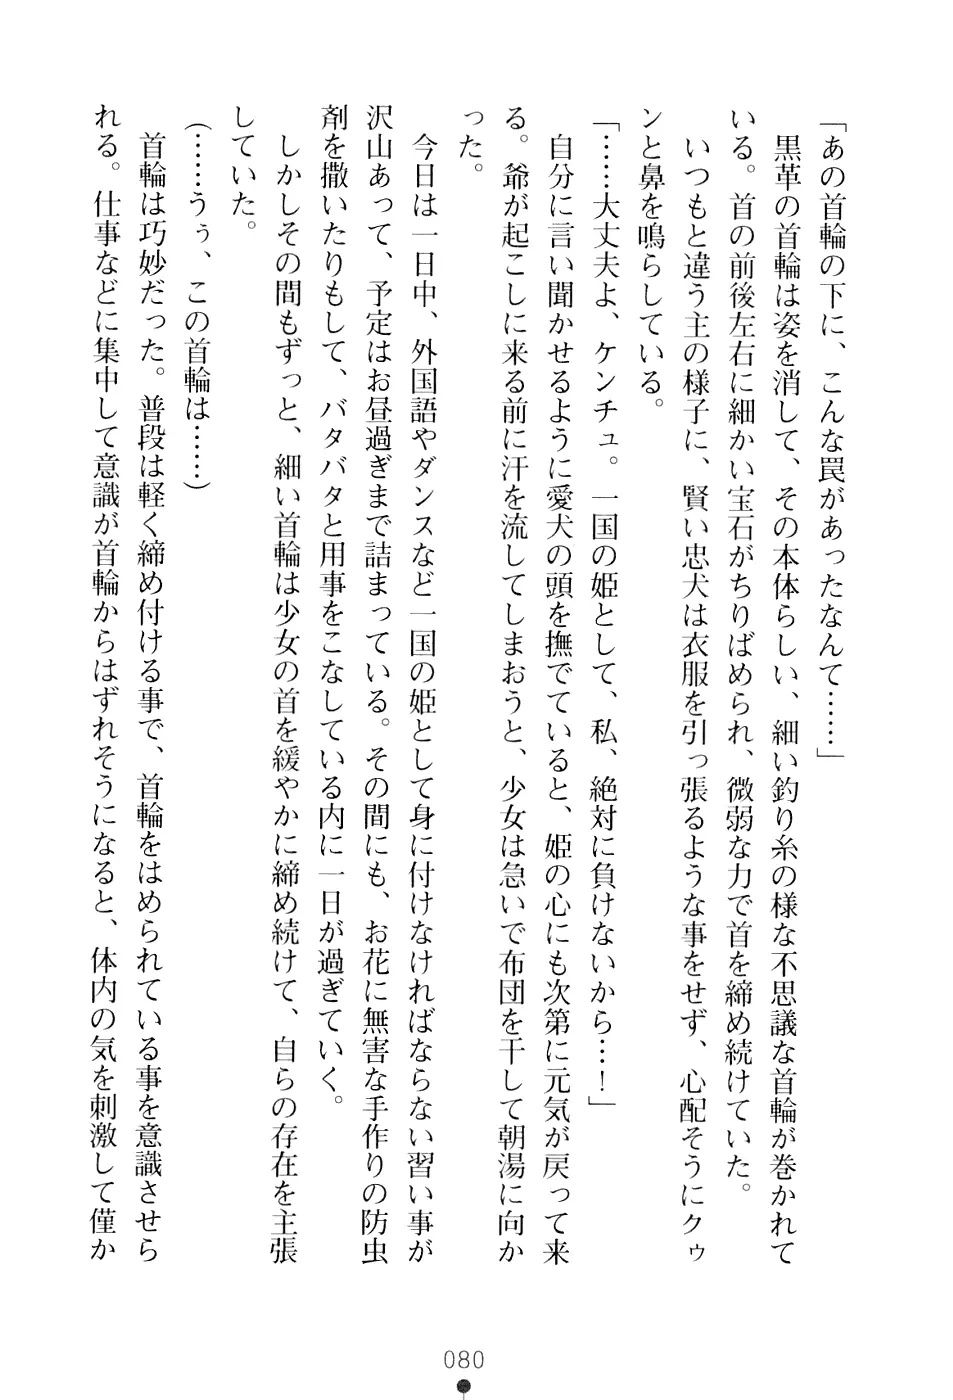 「あの首輪の下に、こんな罠があったなんて……」
　黒革の首輪は姿を消して、その本体らしい、細い釣り糸の様な不思議な首輪が巻かれて
いる。首の前後左右に細かい宝石がちりばめられ、微弱な力で首を締め続けていた。
　いつもと違う主の様子に、賢い忠犬は衣服を引っ張るような事をせず、心配そうにクゥ
ンと鼻を鳴らしている。
「……大丈夫よ、ケンチュ。一国の姫として、私、絶対に負けないから…！」
　自分に言い聞かせるように愛犬の頭を撫でていると、姫の心にも次第に元気が戻って来
る。爺が起こしに来る前に汗を流してしまおうと、少女は急いで布団を干して朝湯に向か
った。
　今日は一日中、外国語やダンスなど一国の姫として身に付けなければならない習い事が
沢山あって、予定はお昼過ぎまで詰まっている。その間にも、お花に無害な手作りの防虫
剤を撒いたりもして、バタバタと用事をこなしている内に一日が過ぎていく。
　しかしその間もずっと、細い首輪は少女の首を緩やかに締め続けて、自らの存在を主張
していた。
（……うぅ、この首輪は……）
　首輪は巧妙だった。普段は軽く締め付ける事で、首輪をはめられている事を意識させら
れる。仕事などに集中して意識が首輪からはずれそうになると、体内の気を刺激して僅か
080